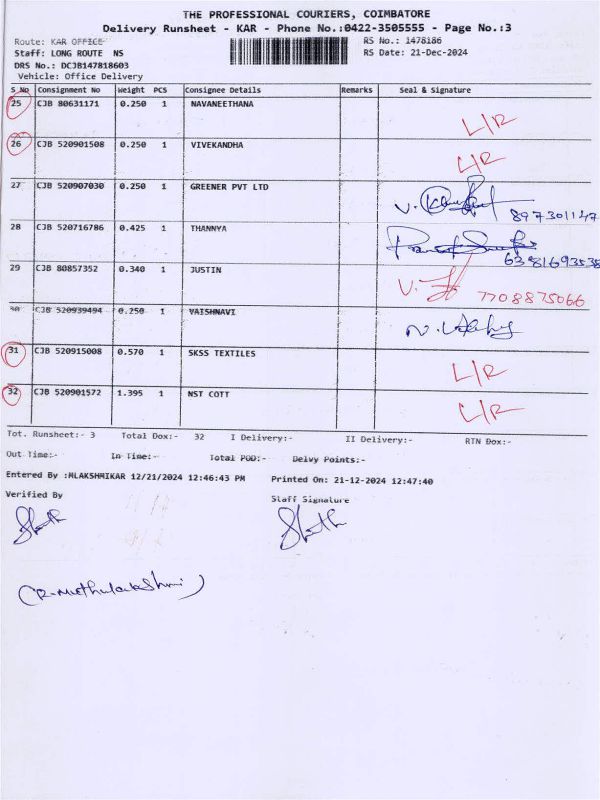 THE PROFESSIONAL COURIERS, COIMBATORE
Delivery Runsheet - KAR - Phone No.:0422-3505555 - Page No.:3
Route: KAR OFFICE RS No.: 1478186
Staff: LONG ROUTE NS RS Date: 21-Dec-2024
DRS No.: DCJB147818603
Vehicle: Office Delivery
S No Consignment No Weight PCS Consignee Details Remarks Seal & Signature
25 CJB 80631171 0.250 1 NAVANEETHANA L/R
26 CJB 520901508 0.250 1 VIVEKANDHA L/R
27 CJB 520907030 0.250 1 GREENER PVT LTD V. 897301147
28 CJB 520716786 0.425 1 THANNYA 6381693538
29 CJB 80857352 0.340 1 JUSTIN V. 7708875066
30 CJB 520939494 0.250 1 VAISHNAVI N.
31 CJB 520915008 0.570 1 SKSS TEXTILES L/R
32 CJB 520901572 1.395 1 NST COTT L/R
Tot. Runsheet:- 3 Total Dox:- 32 I Delivery:- II Delivery:- RTN Dox:-
Out Time:- In Time:- Total POD:- Delvy Points:-
Entered By :MLAKSHMIKAR 12/21/2024 12:46:43 PM Printed On: 21-12-2024 12:47:40
Verified By Staff Signature
(R.Muthulakshmi)